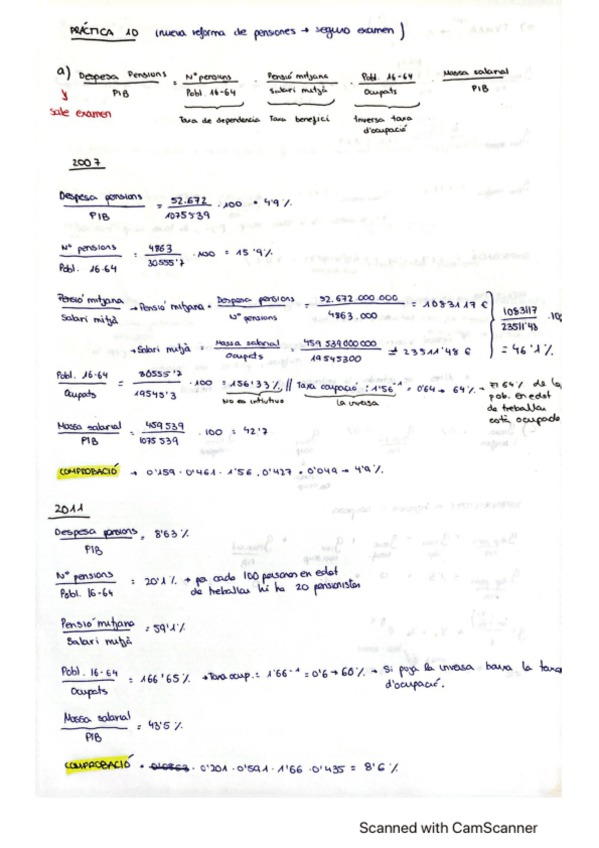 PRÁCTICA 10 (nueva reforma de pensiones → seguro examen)
a) Despesa Pensions / PIB = Nº pensions / Pobl. 16-64 · Pensió mitjana / Salari mitjà · Pobl. 16-64 / Ocupats · Massa salarial / PIB
sale examen
Taxa de dependencia Taxa benefici Inversa taxa d'ocupació
2007
Despesa pensions / PIB = 52.672 / 1075539 · 100 = 4'9%
Nº pensions / Pobl. 16-64 = 4863 / 30555'7 · 100 = 15'9%
Pensió mitjana / Salari mitjà → Pensió mitjana = Despesa pensions / Nº pensions = 52.672 000.000 / 4863.000 = 1083117 €
→ Salari mitjà = Massa salarial / Ocupats = 459 539 000 000 / 19545300 = 23511'48 €
1083117 / 23511'48 · 100 = 46'1%
Pobl. 16-64 / Ocupats = 30555'7 / 19545'3 · 100 = 156'33% // Taxa ocupació: 1'56⁻¹ = 0'64 → 64% → El 64% de la pob. en edat de treballar està ocupada
No es intuitivo la inversa
Massa salarial / PIB = 459539 / 1075 539 · 100 = 42'7
COMPROBACIÓ → 0'159 · 0'461 · 1'56 · 0'427 = 0'049 → 4'9%
2011
Despesa pensions / PIB = 8'63%
Nº pensions / Pobl. 16-64 = 20'1% → per cada 100 persones en edat de treballar hi ha 20 pensionistes
Pensió mitjana / Salari mitjà = 59'1%
Pobl. 16-64 / Ocupats = 166'65% → Taxa ocup.: 1'66⁻¹ = 0'6 → 60% → Si puja la inversa baixa la taxa d'ocupació.
Massa salarial / PIB = 43'5%
COMPROBACIÓ = 0'201 · 0'591 · 1'66 · 0'435 = 8'6%
Scanned with CamScanner